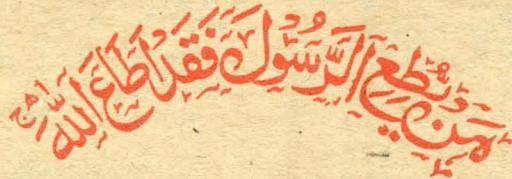 مَن يُّطِعِ الرَّسُوْلَ فَقَدْ اَطَاعَ اللّٰهَ